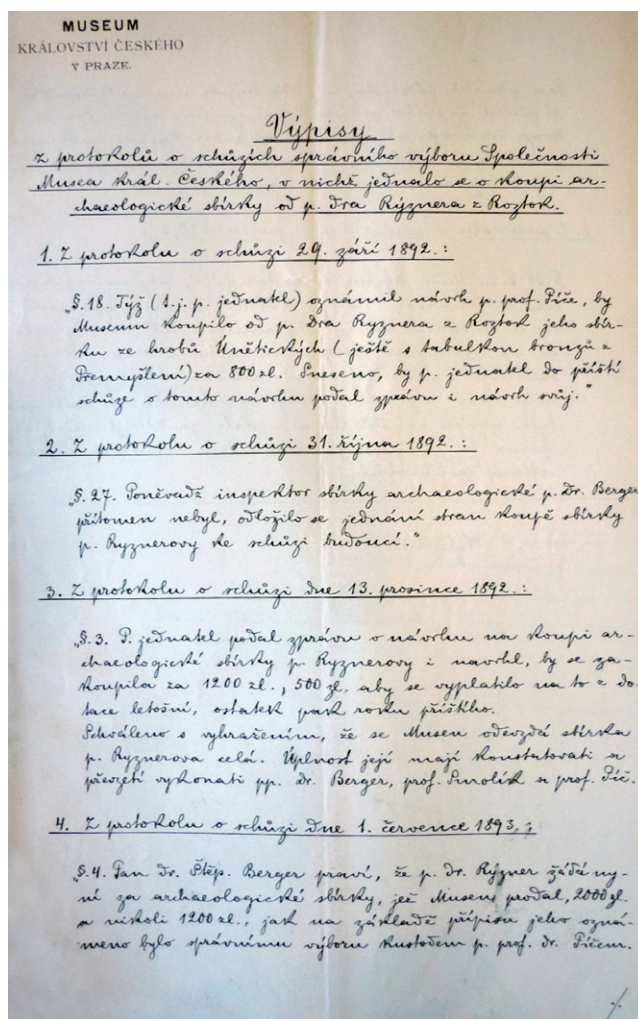 MUSEUM
KRÁLOVSTVÍ ČESKÉHO
V PRAZE.
Výpisy
z protokolů o schůzích správního výboru Společnosti
Musea král. Českého, v nichž jednalo se o koupi ar-
chaeologické sbírky od p. Dra Rýznera z Roztok.
1. Z protokolu o schůzi 29. září 1892.:
„§. 18. Týž (t.j. p. jednatel) oznámil návrh p. prof. Píče, by
Museum koupilo od p. Dra Ryznera z Roztok jeho sbír-
ku ze hrobů Únětických (ještě s tabulkou bronzů z
Přemyšlení) za 800 zl. Sneseno, by p. jednatel do příští
schůze o tomto návrhu podal zprávu i návrh svůj."
2. Z protokolu o schůzi 31. října 1892.:
„§. 27. Poněvadž inspektor sbírky archaeologické p. Dr. Berger
přítomen nebyl, odložilo se jednání stran koupě sbírky
p. Ryznerovy ke schůzi budoucí."
3. Z protokolu o schůzi dne 13. prosince 1892.:
„§. 3. P. jednatel podal zprávu o návrhu na koupi ar-
chaeologické sbírky p. Ryznerovy i navrhl, by se za-
koupila za 1200 zl., 500 zl. aby se vyplatilo na to z do-
tace letošní, ostatek pak roku příštího.
Schváleno s vyhražením, že se Museu odevzdá sbírka
p. Ryznerova celá. Úplnost její mají konstatovati a
převzetí vykonati pp. Dr. Berger, prof. Smolík a prof. Píč.
4. Z protokolu o schůzi dne 1. července 1893.:
„§. 4. Pan Dr. Štěp. Berger praví, že p. dr. Rýzner žádá ny-
ní za archaeologické sbírky, jež Museu prodal, 2000 zl.
a nikoli 1200 zl., jak na základě přípisu jeho ozná-
meno bylo správnímu výboru kustodem p. prof. dr. Píčem.
./.